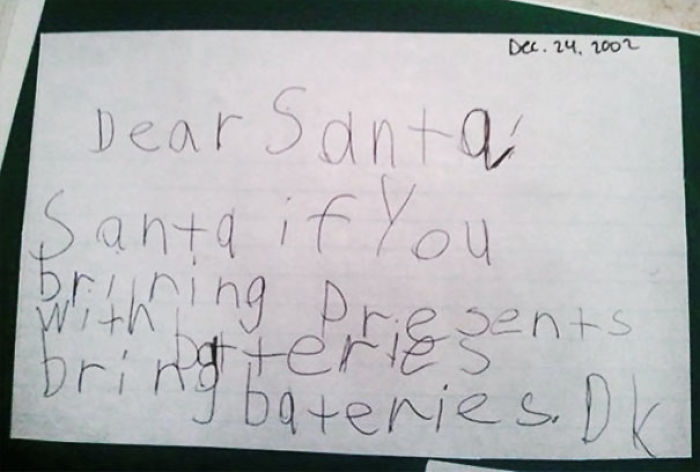 Dec. 24, 2002
Dear Santa
Santa if You
briining Presents
with batteries
bring bateries. Dk